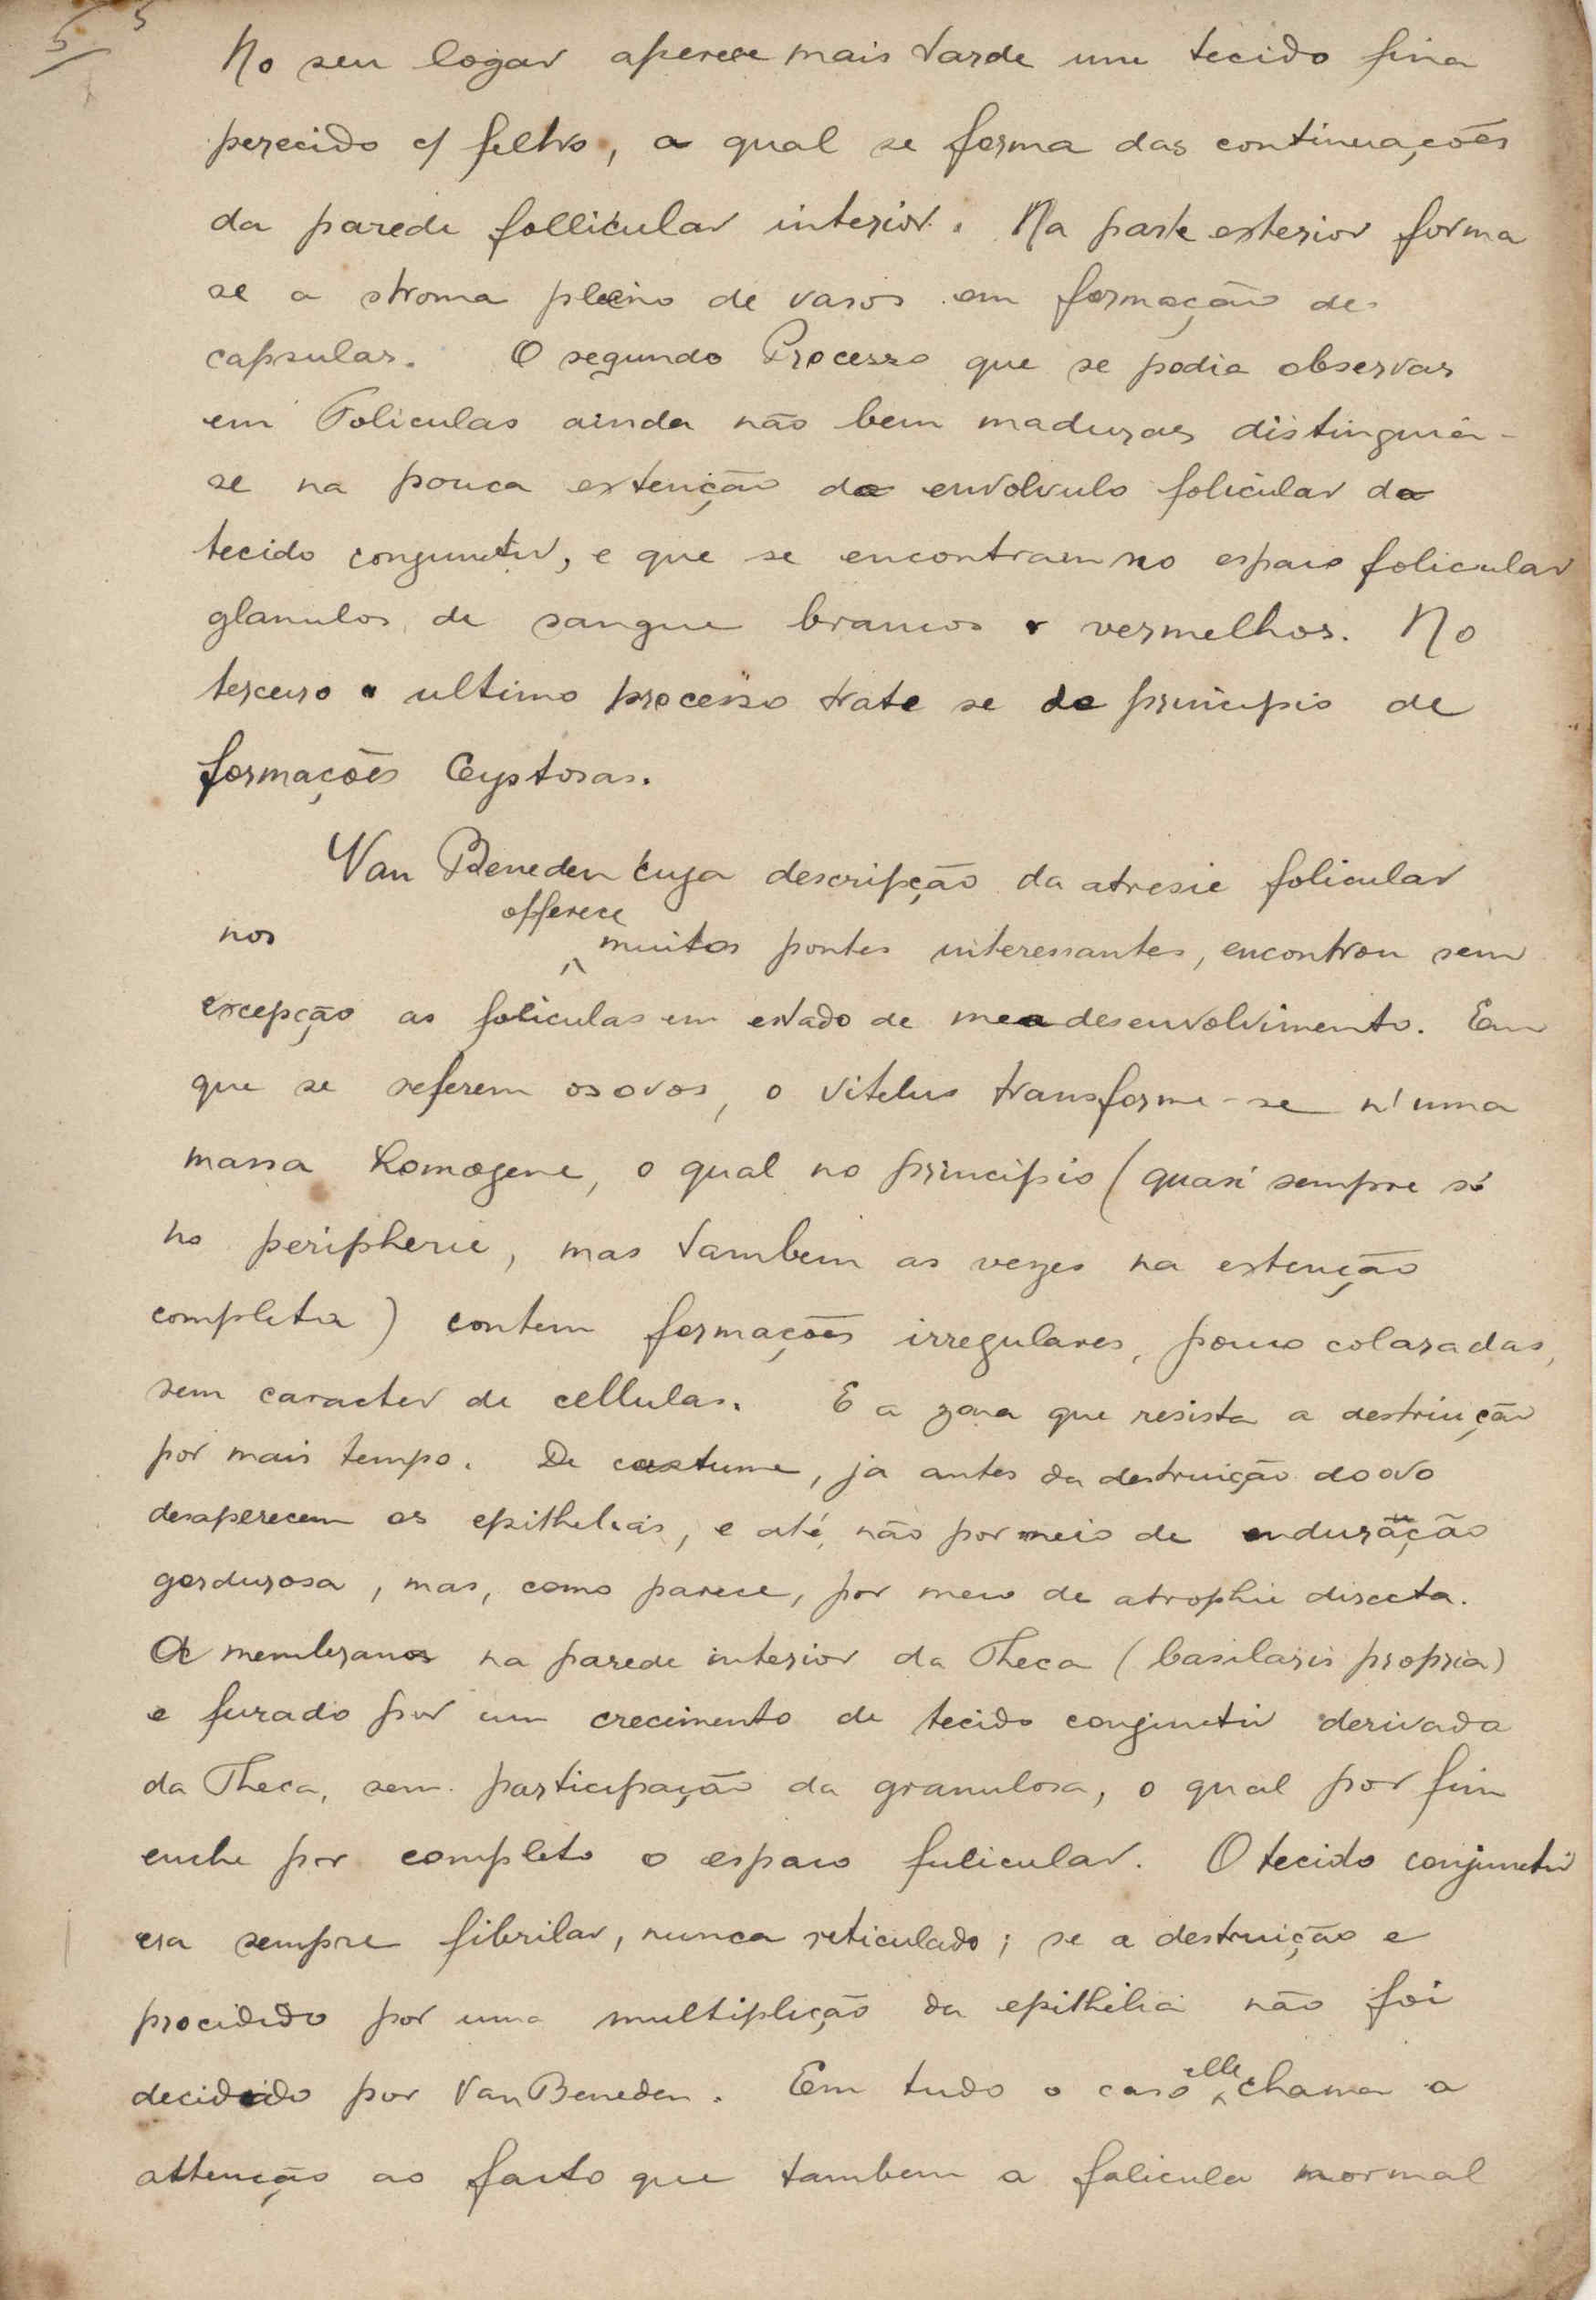 5 5
No seu logar aperece mais tarde um tecido fina
perecido c/ feltro, a qual se forma das continuações
da parede follicular interior. Na parte exterior forma
se a stroma pleino de vasos em formação de
capsulas. O segundo Processo que se podia observar
em Foliculas ainda não bem maduras distinguia-
se na pouca extenção do envolvulo folicular do
tecido congunctiv, e que se encontram no espaio folicular
glanulos de sangue brancos e vermelhos. No
terceiro e ultimo processo trate se do principio de
formações Cystosas.
Van Beneden cuja descripção da atresie folicular
nos offerece muitos pontes interessantes, encontrou sem
excepção as foliculas em estado de mea desenvolvimento. Em
que se referem os ovos, o vitelus transforme-se n'uma
massa homogene, o qual no principio (quasi sempre só
no peripherie, mas tambem as vezes na extenção
completa) contem formações irregulares, pouco colaradas,
sem caracter de cellulas. E a zona que resista a destruição
por mais tempo. De costume, ja antes da destruição do ovo
desaperecem os epitheliais, e até não por meio de enduração
gordurosa, mas, como parece, por meio de atrophie directa.
A membrana na parede interior da Theca (basilaris propria)
e furado por um crecimento de tecido conjunctiv derivada
da Theca, sem participação da granulosa, o qual por fim
enche por completo o espaio fulicular. O tecido conjunctiv
era sempre fibrilar, nunca reticulado; se a destruição e
procidido por uma multiplição da epithelia não foi
decidido por Van Beneden. Em tudo o caso elle chama a
attenção ao facto que tambem a folicula normal